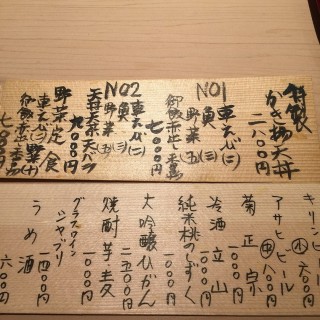 特製
かき揚天丼
二八〇〇円
NO1
車えび(二)
魚(三)
野菜(三)
御飯赤出香物
七〇〇〇円
NO2
車えび(二)
魚(三)
野菜(五)
天丼天茶天バラ
九〇〇〇円
野菜定食
車えび(二)野菜(十)
御飯赤出香物
七〇〇〇円
キリンビール
(小)六〇〇円
アサヒビール
(中)八〇〇円
菊正宗
一〇〇〇円
冷酒立山
一〇〇〇円
純米桃のしずく
一六〇〇円
大吟醸ひかん
二五〇〇円
焼酎芋・麦
一〇〇〇円
グラスワイン
シャブリ
一四〇〇円
うめ酒
六〇〇円